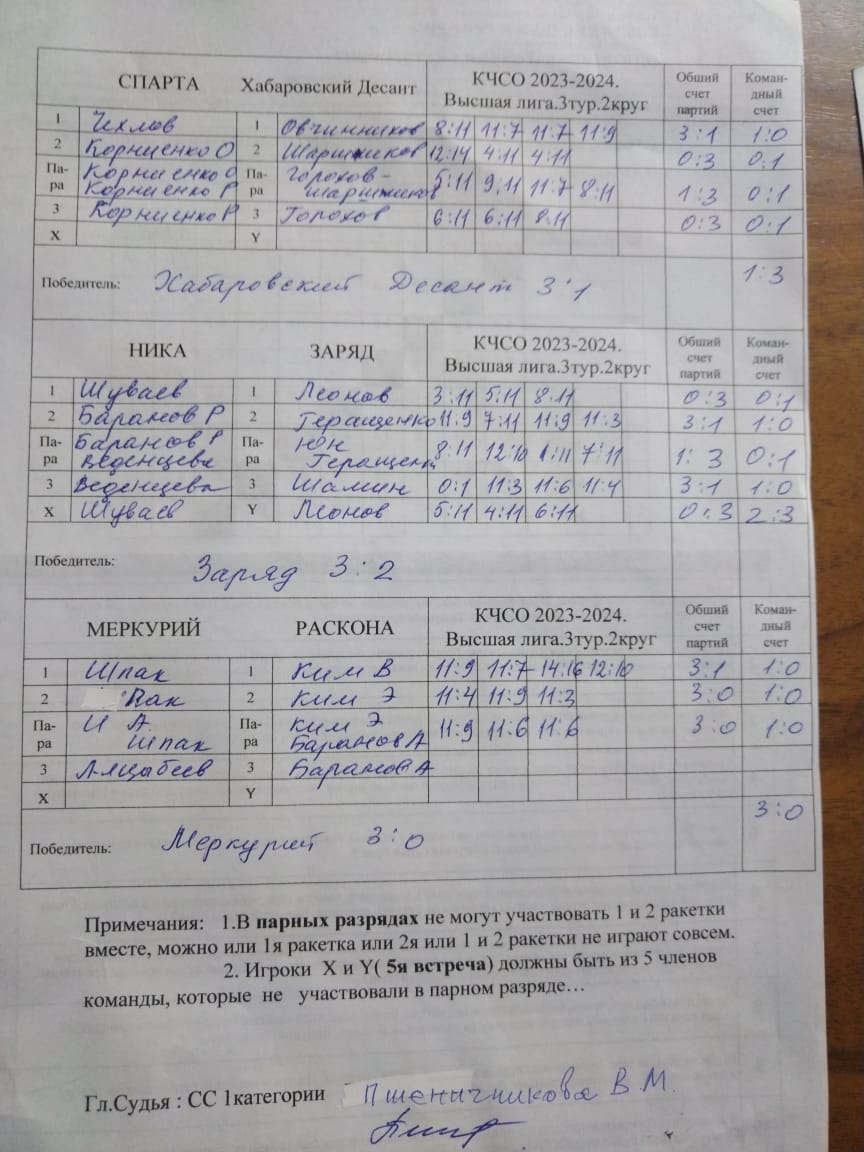 СПАРТА Хабаровский Десант КЧСО 2023-2024. Высшая лига.3тур.2круг Общий счет партий Коман-дный счет
1 Чехлов 1 Овчинников 8:11 11:7 11:7 11:9 3:1 1:0
2 Корниенко О 2 Шаришков 12:14 4:11 4:11 0:3 0:1
Па-ра Корниенко О Корниенко Р Па-ра Горохов- 5:11 9:11 11:7 8:11 1:3 0:1
3 Корниенко Р 3 Горохов 6:11 6:11 8:11 0:3 0:1
X Y
Победитель: Хабаровский Десант 3:1 1:3
НИКА ЗАРЯД КЧСО 2023-2024. Высшая лига.3тур.2круг Общий счет партий Коман-дный счет
1 Шуваев 1 Леонов 3:11 5:11 8:11 0:3 0:1
2 Баранов Р 2 Геращенко 11:9 7:11 11:9 11:3 3:1 1:0
Па-ра Баранов Р Веденцева Па-ра Юн Геращенко 8:11 12:10 7:11 1:3 0:1
3 Веденцева 3 Шамин 0:1 11:3 11:6 11:4 3:1 1:0
X Шуваев Y Леонов 5:11 4:11 6:11 0:3 2:3
Победитель: Заряд 3:2
МЕРКУРИЙ РАСКОНА КЧСО 2023-2024. Высшая лига.3тур.2круг Общий счет партий Коман-дный счет
1 Шпак 1 Ким В 11:9 11:7 14:16 12:10 3:1 1:0
2 Пак 2 Ким Э 11:4 11:9 11:3 3:0 1:0
Па-ра И А. Шпак Па-ра Ким Э Баранов А 11:9 11:6 11:6 3:0 1:0
3 3 Баранов А
X Y 3:0
Победитель: Меркурий 3:0
Примечания: 1.В парных разрядах не могут участвовать 1 и 2 ракетки
вместе, можно или 1я ракетка или 2я или 1 и 2 ракетки не играют совсем.
2. Игроки X и Y( 5я встреча) должны быть из 5 членов
команды, которые не участвовали в парном разряде…
Гл.Судья : СС 1категории Пшеничникова В М.